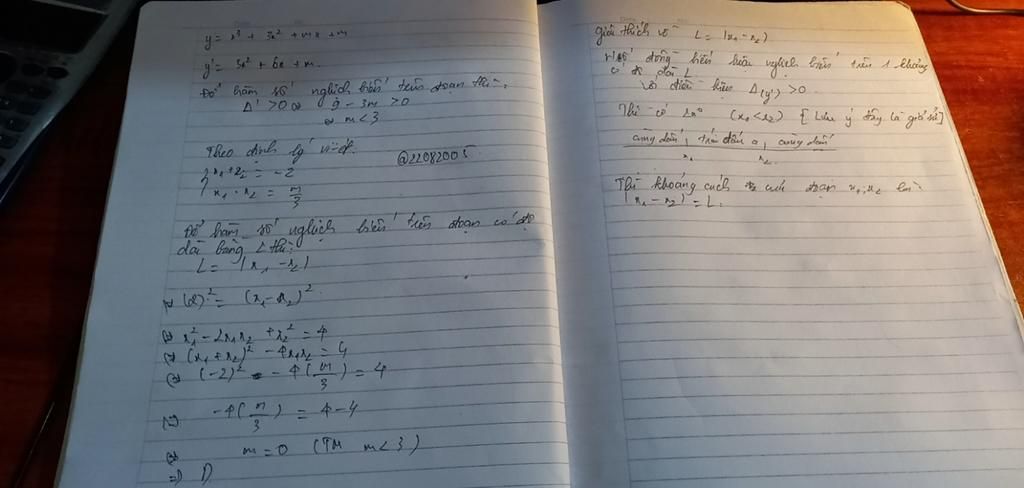 y = x³ + 3x² + mx + m
y' = 3x² + 6x + m
Để hàm số nghịch biến trên đoạn thì:
Δ' > 0 ⇔ 9 - 3m > 0
⇔ m < 3
Theo định lý vi-ét.
@22082005
{ x₁ + x₂ = -2
x₁ . x₂ = m/3
Để hàm số nghịch biến trên đoạn có độ
dài bằng 2 thì:
L = |x₁ - x₂|
⇔ (2)² = (x₁ - x₂)²
⇔ x₁² - 2x₁x₂ + x₂² = 4
⇔ (x₁ + x₂)² - 4x₁x₂ = 4
⇔ (-2)² - 4(m/3) = 4
⇔ -4(m/3) = 4 - 4
⇔ m = 0 (TM m < 3)
⇒ D
giải thích về L = |x₁ - x₂|
số đồng biến nghịch biến trên 1 khoảng
có độ dài L
điều kiện Δ(y') > 0
Thì có 2n⁰ (x₁ < x₂) [Lưu ý đây là giả sử]
cùng dấu, trái dấu a, cùng dấu
x₁ x₂
Thì khoảng cách của đoạn x₁; x₂ là:
|x₁ - x₂| = L.